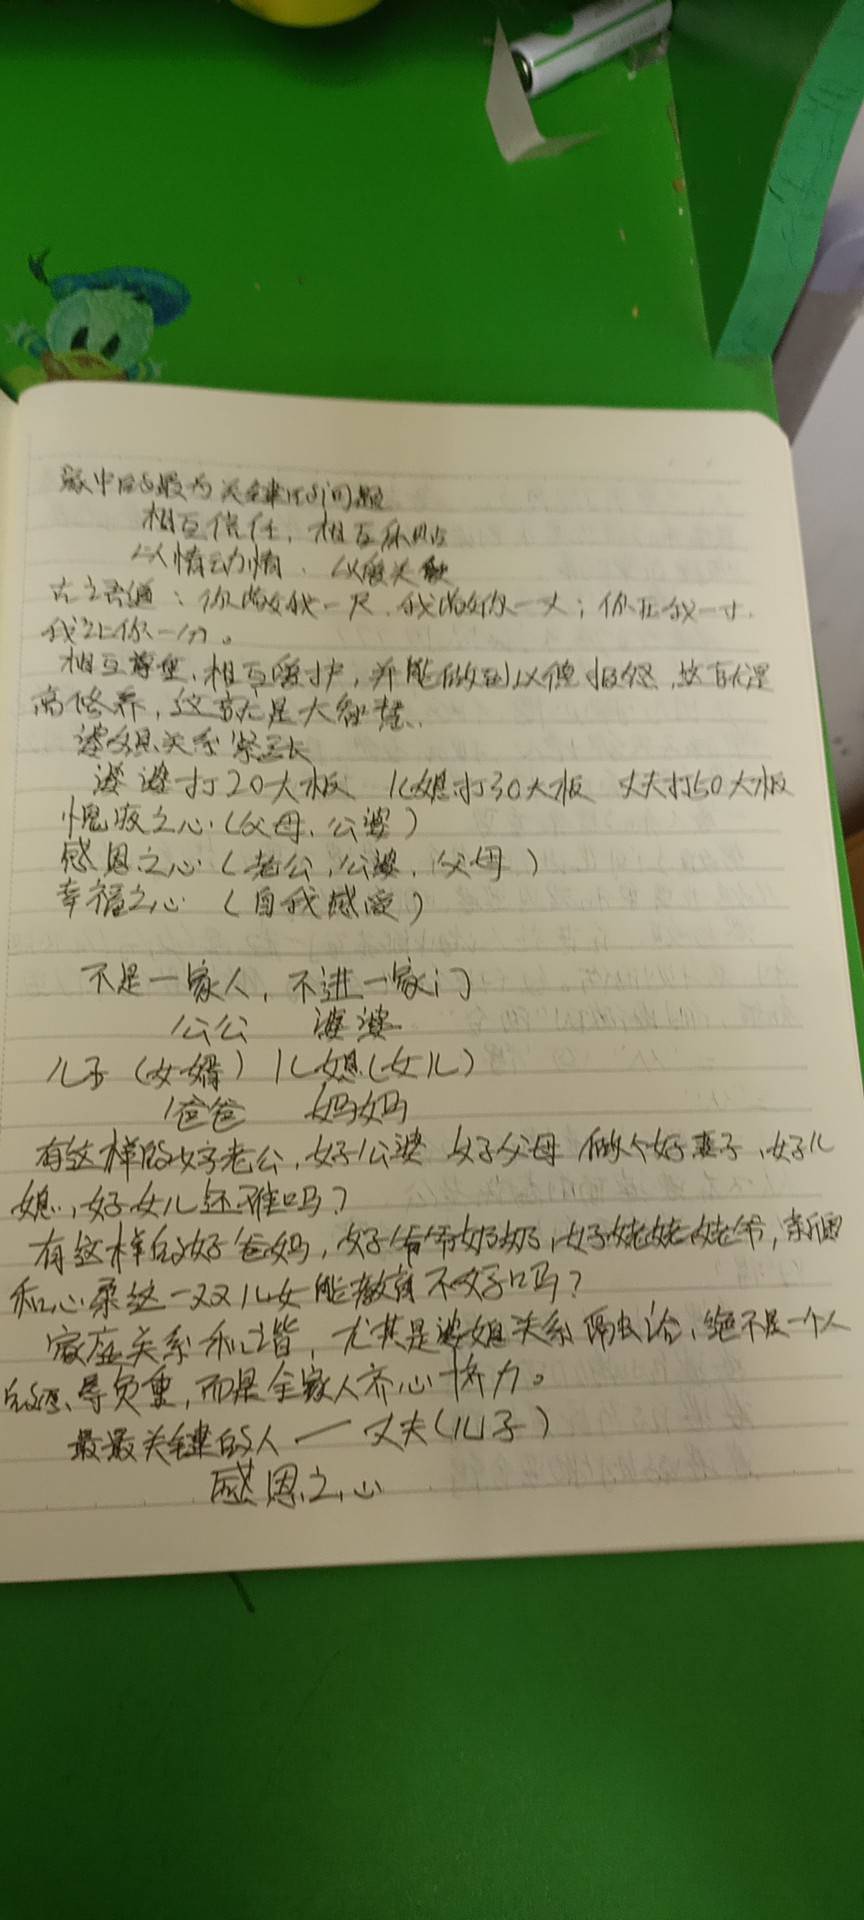 家中的最为关键的问题
相互信任，相互体贴
以情动情，以爱
古之君道：你敬我一尺，我敬你一丈；你让我一寸，
我让你一分。
相互尊重，相互爱护，并能做到以德报怨，这就是
高修养，这就是大智慧。
婆媳关系紧张
婆婆打20大板 儿媳打30大板 丈夫打50大板
愧疚之心（父母、公婆）
感恩之心（老公，公婆，父母）
幸福之心（自我感受）
不是一家人，不进一家门
公公 婆婆
儿子（女婿） 儿媳（女儿）
爸爸 妈妈
有这样的好老公，好公婆 好父母 做个好妻子、好儿
媳、好女儿还难吗？
有这样的好爸妈，好爷爷奶奶，好姥姥姥爷，
和心柔这一双儿女能教育不好吗？
家庭关系和谐，尤其是婆媳关系，绝不是一个人
负重，而是全家人齐心协力。
最最关键的人一丈夫（儿子）
感恩之心